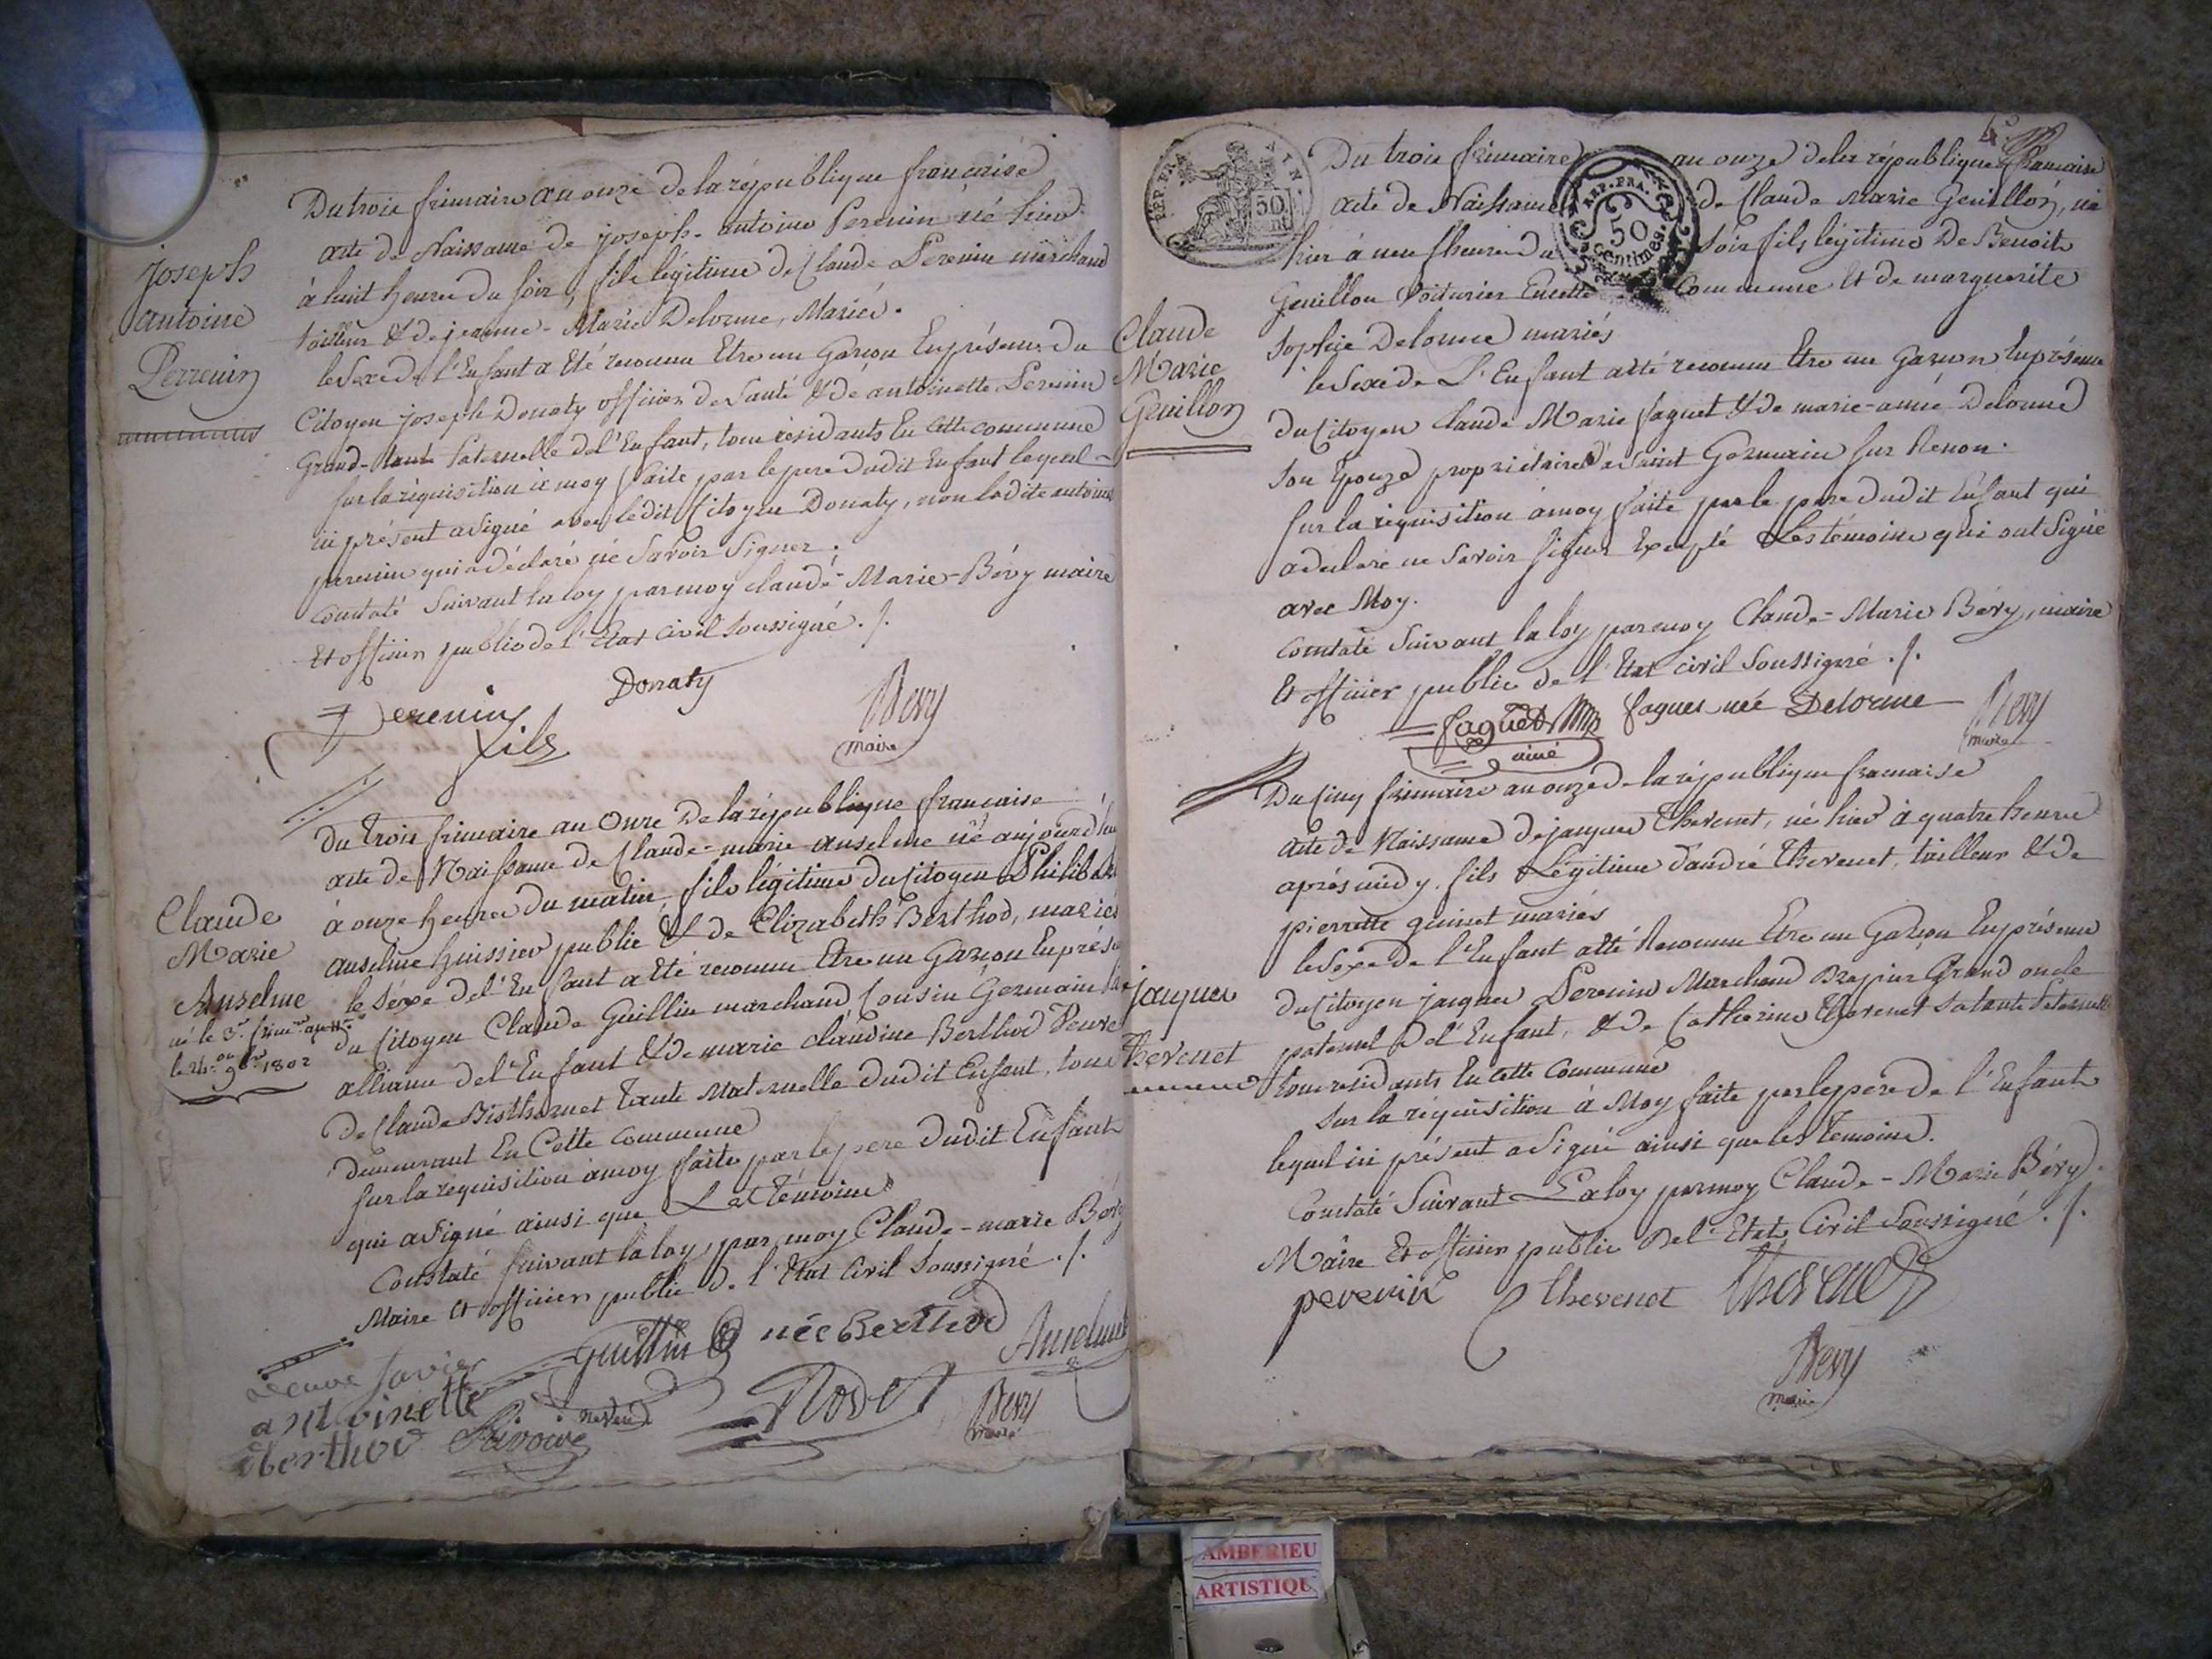 Joseph
antoine
Perrenin
Du trois frimaire an onze de la république française
acte de Naissance de joseph-antoine Perenin né hier
à huit heures du soir, fils légitime de Claude Perenin marchand
tailleur & de jeanne-Marie Delorme, Mariés.
le Sexe de l'Enfant a Eté reconnu Etre un Garçon En présence du
Citoyen joseph Donaty officier de Santé & de antoinette Perenin
Grand-tante Paternelle de l'Enfant, tous résidants En cette commune
sur la réquisition à moy faite par le pere dudit Enfant lequel
ici présent a signé avec ledit Citoyen Donaty, non ladite antoinette
perenin qui a déclaré ne Savoir Signer.
constaté Suivant la loy par moy claude-Marie-Béry maire
Et officier public de l'Etat civil soussigné ./.
Perenin
fils
Donaty
Bery
maire
Claude
Marie
Anselme
né le 3e frimre an 11e
ou
le 24 9bre 1802
du trois frimaire an Onze De la république française
acte de Naissance de Claude-marie anselme né aujourd'hui
à onze heures du matin, fils légitime du Citoyen Philibert
anselme huissier public & de Elizabeth Berthod, mariés
le Séxe de l'Enfant a Eté reconnu Etre un Garçon En présence
du Citoyen Claude Guillin marchand Cousin Germain par
alliance de l'Enfant & de marie claudine Berthod Veuve
De Claude Bisthernet tante Maternelle dudit Enfant, tous
demeurant En Cette commune
sur la requisition à moy faite par le pere dudit Enfant
qui a signé ainsi que Les témoins
Constaté suivant la loy, par moy Claude-marie Béry
Maire et officier public de l'Etat Civil Soussigné ./.
Guillin née Berthod Anselme
veuve Savier
antoinette
berthod
Rodet
Bery
maire
4e
REP. FRA.
50
Du trois frimaire an onze de la république française
REP. FRA.
50
Centimes.
acte de Naissance de Claude Marie Genillon, né
hier à neuf heures du soir fils légitime De Benoit
Genillon Voiturier En cette Commune Et de marguerite
Sophie Delorme mariés
Claude
Marie
Genillon
le Sexe de L'Enfant a été reconnu Etre un Garçon En présence
du Citoyen Claude Marie faguet & de marie-anne Delorme
Son Epouze propriétaires à Saint Germain sur Renon.
sur la réquisition à moy faite par le pere dudit Enfant qui
a declaré ne Savoir signer Excepté Les témoins qui ont Signé
avec Moy.
constaté Suivant la loy par moy Claude-Marie Béry, maire
Et officier public de l'Etat civil Soussigné ./.
faguet
ainé
faguet née Delorme
Bery
maire
Du Cinq frimaire an onze de la république francaise
acte de Naissance de jacques Thevenet, né hier à quatre heures
après midy, fils Légitime d'andré Thevenet, tailleur & de
pierrette guinet mariés
jacques
thevenet
le Sexe de l'Enfant a Eté Reconnu Etre un Garçon En présence
du Citoyen jacques Perenin Marchand Drapier Grand oncle
paternel De l'Enfant, & de Catherine Thevenet sa tante Paternelle
tous résidants En cette Commune
Sur la réquisition à Moy faite par le pere de l'Enfant
lequel ici présent a signé ainsi que les Temoins.
Constaté Suivant La loy par moy Claude-Marie Béry
Maire Et officier public De l'Etat Civil Soussigné ./.
perenin thevenet thevenet
Bery
maire
AMBERIEU
ARTISTIQU